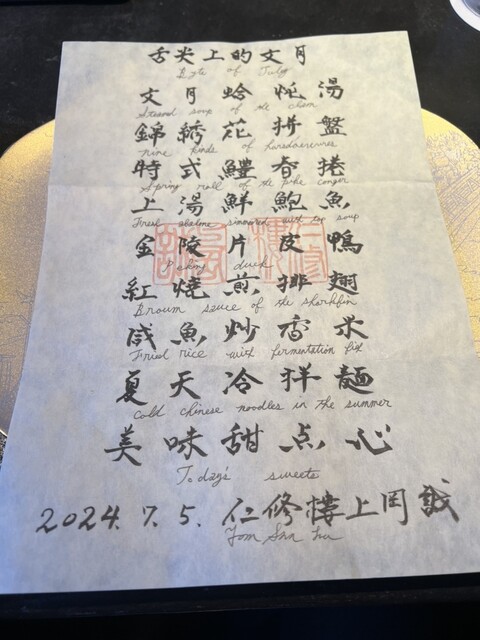 舌尖上的文月
Byte of July
文月蛤炖湯
Steamd soup of the clam
錦綉花拼盤
nine kinds of horsdoeuvres
時式鱧春捲
Spring roll of the pike conger
上湯鮮鮑魚
Fresh abalone simmered with top soup
金陵片皮鴨
Peking duck
紅燒煎排翅
Broum sauce of the sharkfin
咸魚炒香米
Fried rice with fermentation fish
夏天冷拌麵
Cold chinese noodles in the summer
美味甜点心
Today's sweets
2024.7.5. 仁修樓上岡誠